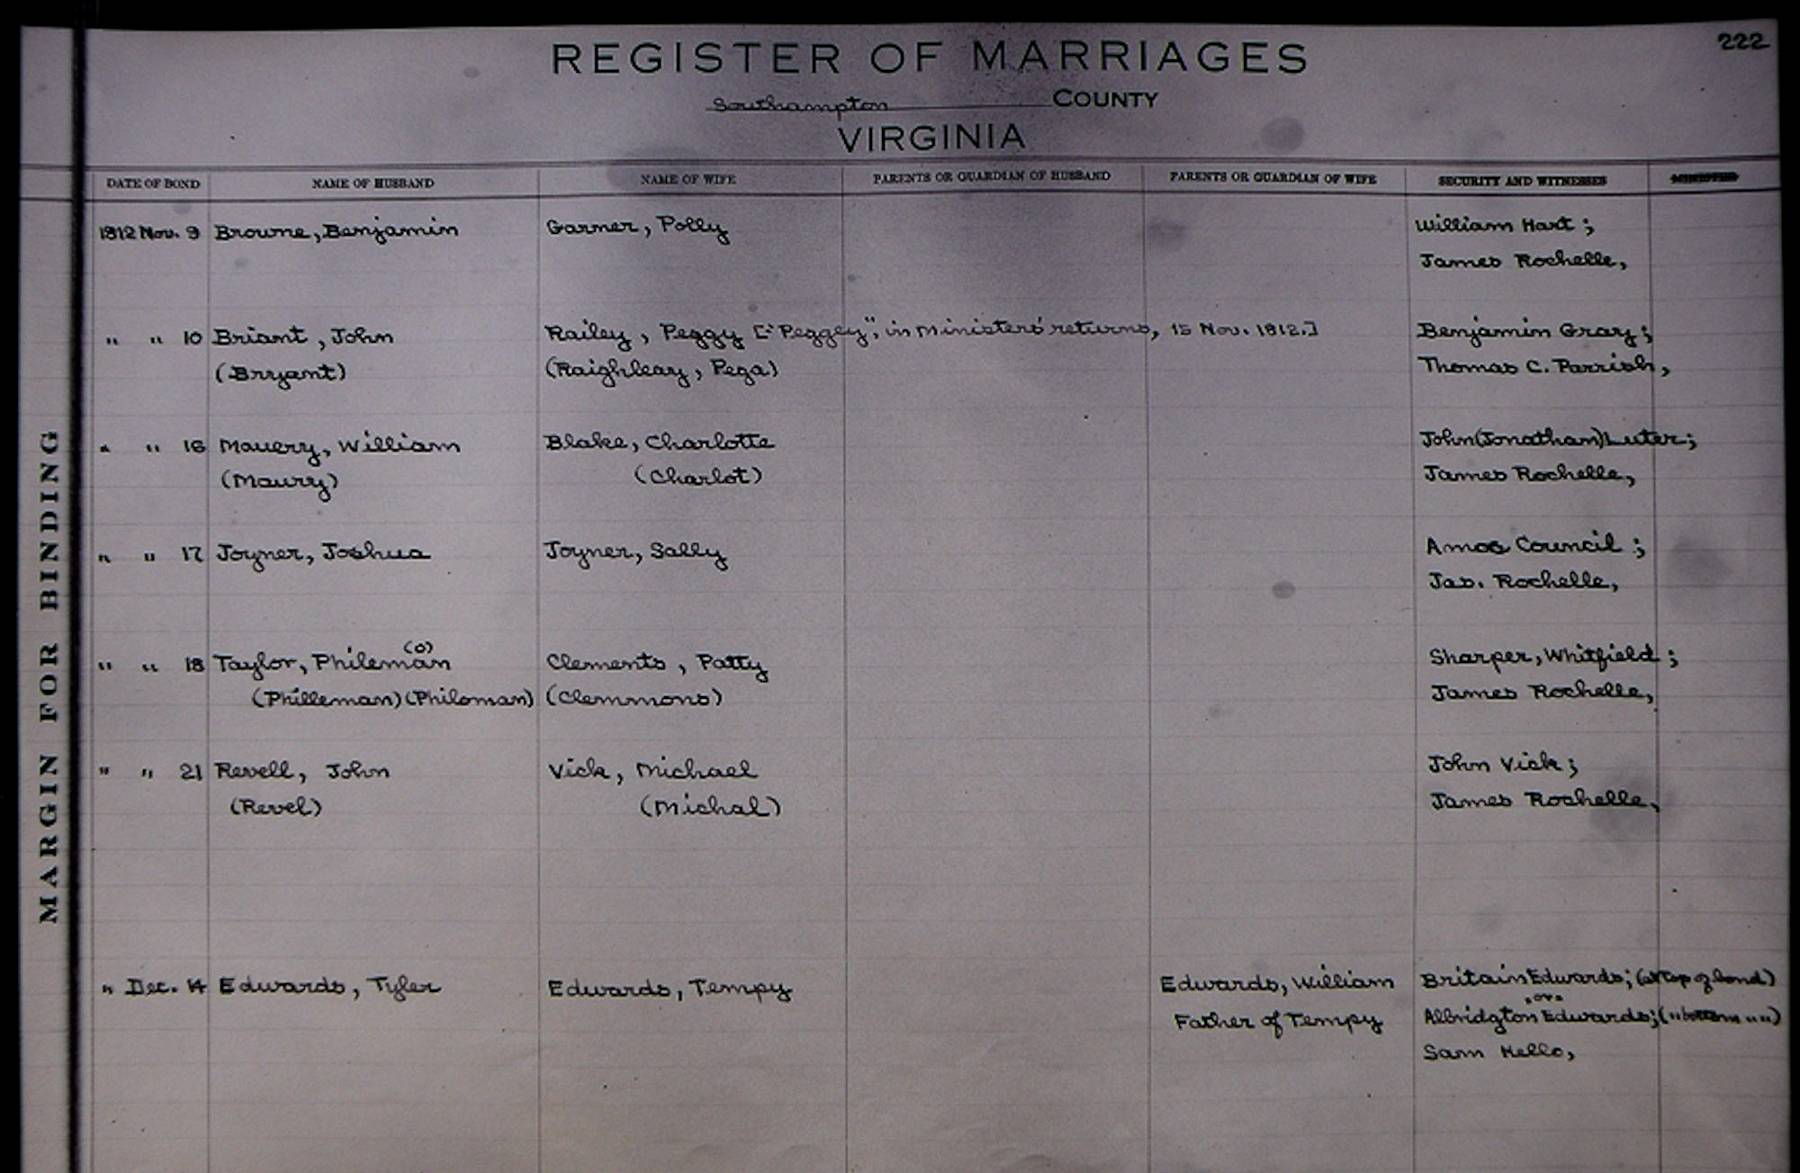 222
REGISTER OF MARRIAGES
Southampton COUNTY
VIRGINIA
DATE OF BOND NAME OF HUSBAND NAME OF WIFE PARENTS OR GUARDIAN OF HUSBAND PARENTS OR GUARDIAN OF WIFE SECURITY AND WITNESSES MINISTER
1812 Nov. 9 Browne, Benjamin Garner, Polly William Hart;
James Rochelle,
" " 10 Briant, John Railey, Peggy ["Peggey", in Ministers' returns, 15 Nov. 1812.] Benjamin Gray;
(Bryant) (Raighleay, Pega) Thomas C. Parrish,
" " 16 Mauery, William Blake, Charlotte John(Jonathan)Luter;
(Maury) (Charlot) James Rochelle,
" " 17 Joyner, Joshua Joyner, Sally Amos Council;
Jas. Rochelle,
(o)
" " 18 Taylor, Phileman Clements, Patty Sharper, Whitfield;
(Philleman) (Philoman) (Clemmons) James Rochelle,
" " 21 Revell, John Vick, Michael John Vick;
(Revel) (Michal) James Rochelle,
" Dec. 14 Edwards, Tyler Edwards, Tempy Edwards, William Britain Edwards; (at top of bond)
"or"
Father of Tempy Albridgton Edwards; (" bottom " ")
Sam Kello,
MARGIN FOR BINDING